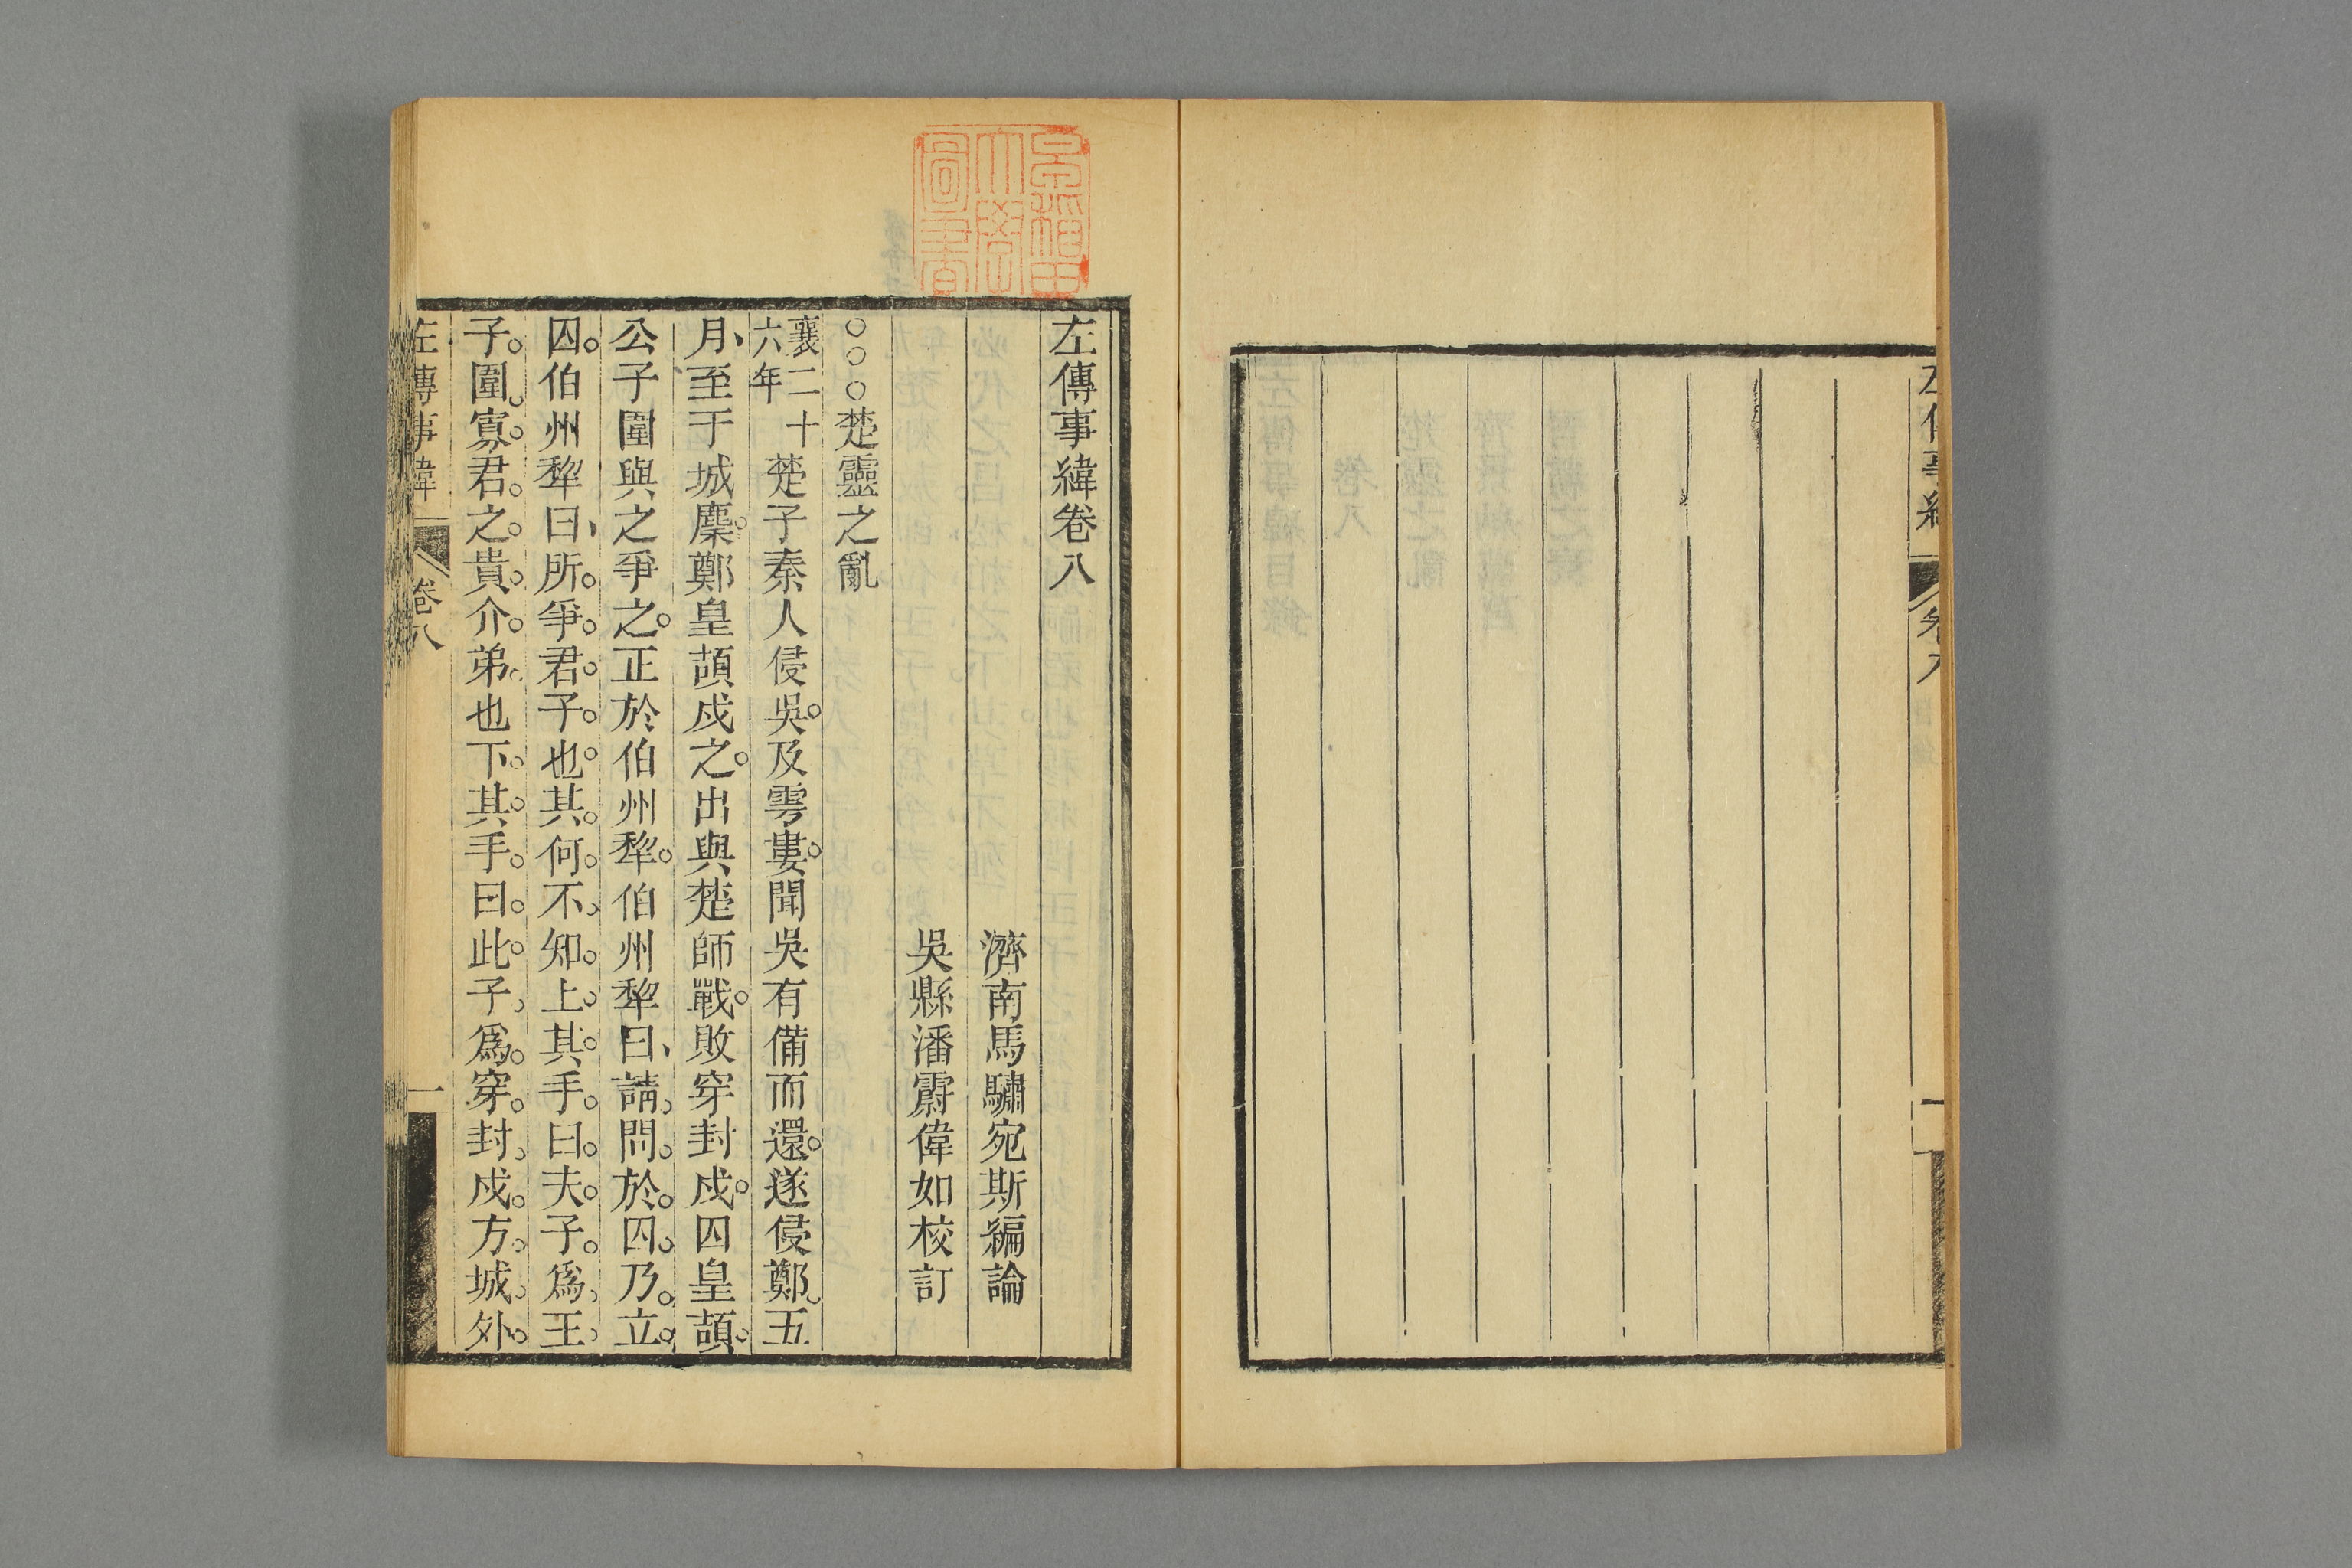 左傳事緯
卷八
早稻田
大學
圖書
左傳事緯卷八
濟南馬驌宛斯編論
吳縣潘霨偉如校訂
○○○楚靈之亂
襄二十
六年
楚子秦人侵吳。及雩婁。聞吳有備而還。遂侵鄭。五
月、至于城麇。鄭皇頡戍之。出與楚師戰。敗穿封戍。囚皇頡。
公子圍與之爭之。正於伯州犂。伯州犂曰、請問於囚。乃立
囚。伯州犂曰、所爭君子也。其何不知。上其手曰。夫子爲王
子圍。寡君之貴介弟也。下其手曰。此子爲穿封戍。方城外
左傳事緯
卷八
一